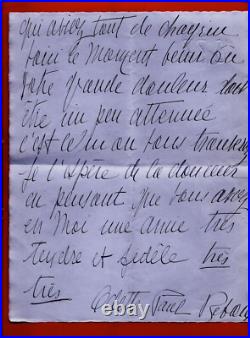 qui avez tant de chagrin
voici le moment béni où
votre grande douleur doit
être un peu attenuée
c'est celui où vous
je l'espère de la douceur
en pensant que vous avez
en Moi une amie très
tendre et fidèle très
très Odette Paul